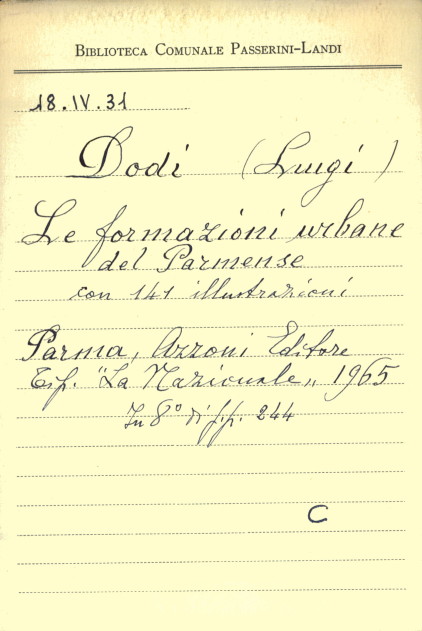 BIBLIOTECA COMUNALE PASSERINI-LANDI
18.IV.31
Dodi (Luigi)
Le formazioni urbane
del Parmense
con 141 illustrazioni
Parma, Azzoni Editore
Tip. "La Nazionale„ 1965
In 8° di f.p. 244
C